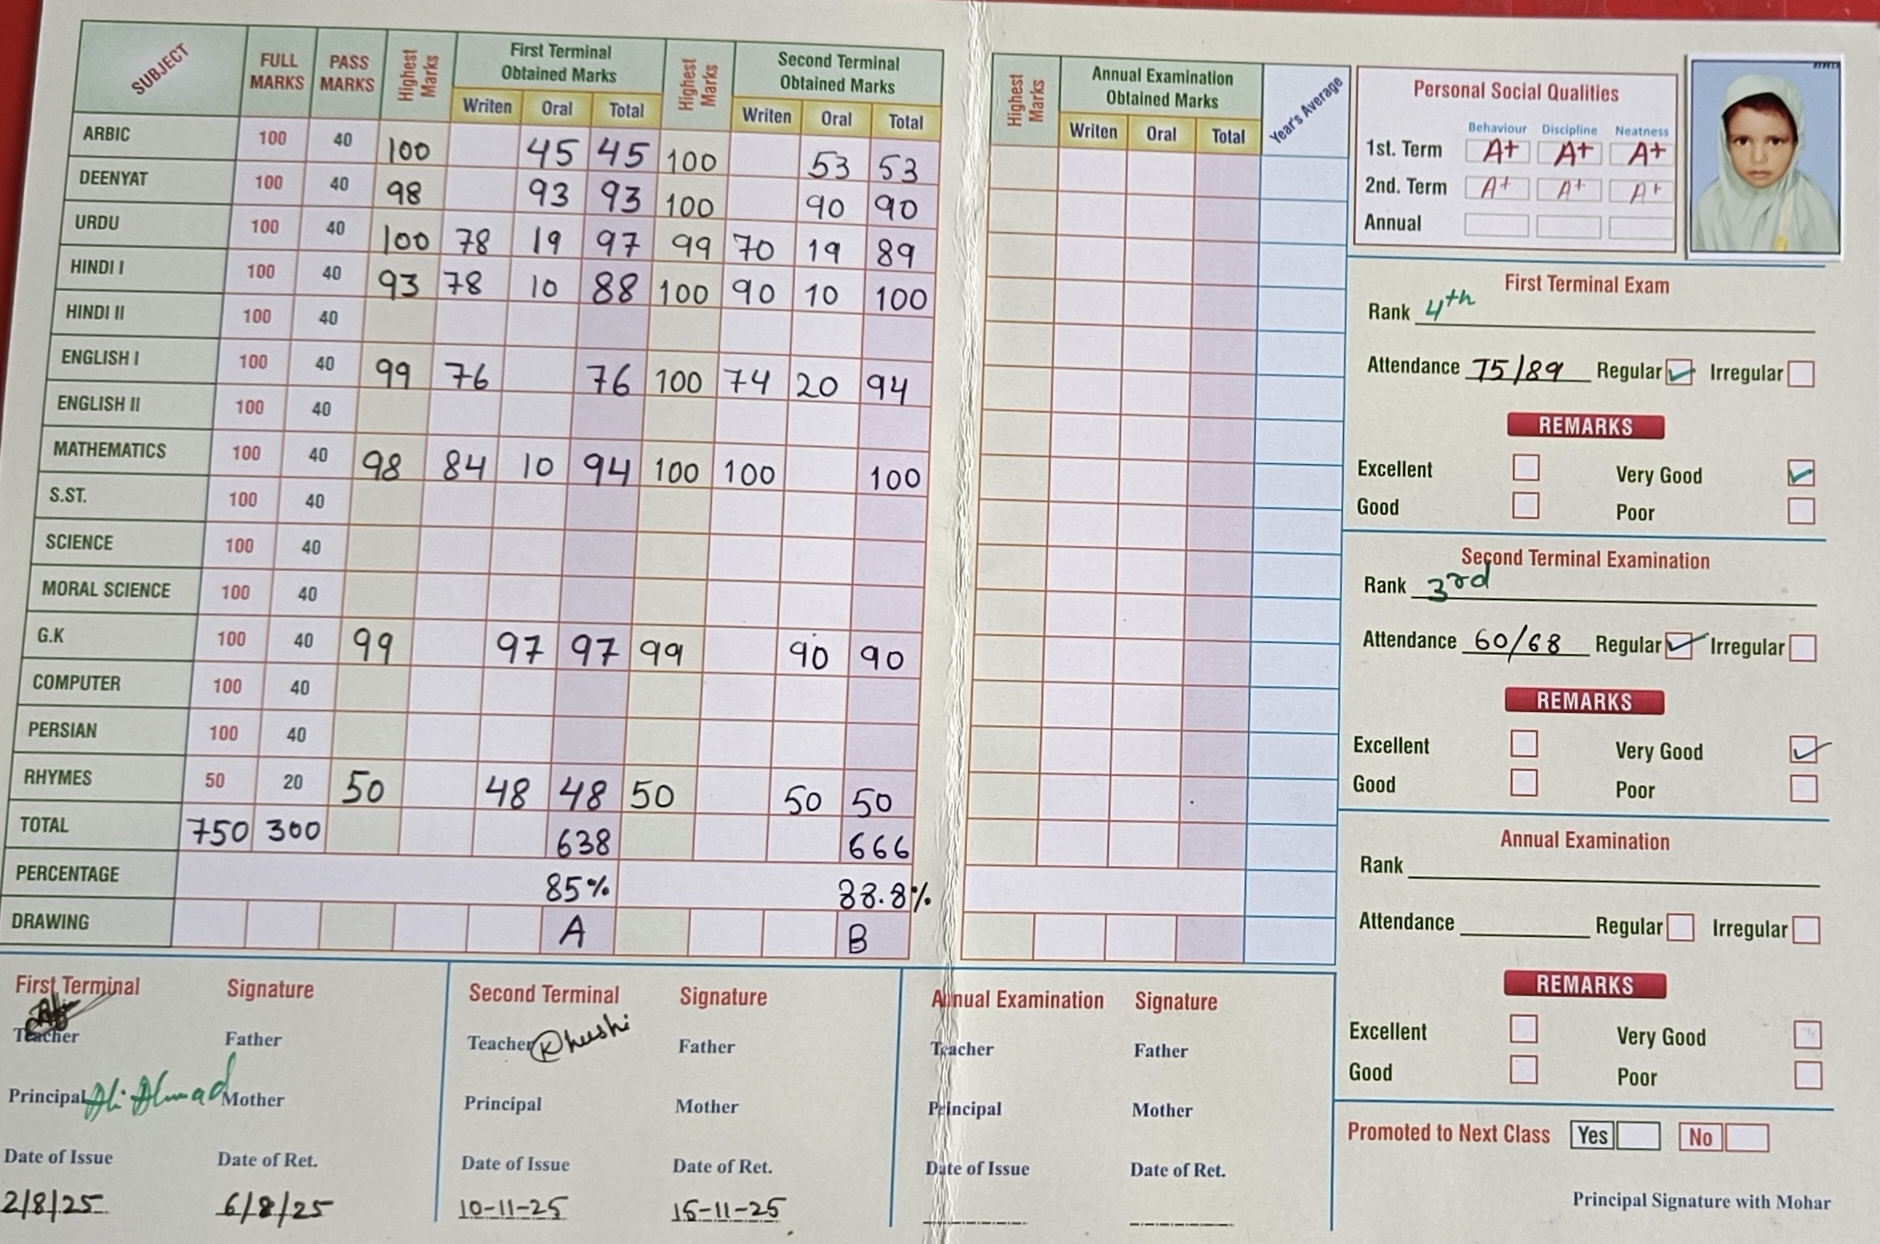 SUBJECT FULL MARKS PASS MARKS Highest Marks First Terminal Obtained Marks Highest Marks Second Terminal Obtained Marks
Writen Oral Total Writen Oral Total
ARBIC 100 40 100 45 45 100 53 53
DEENYAT 100 40 98 93 93 100 90 90
URDU 100 40 100 78 19 97 99 70 19 89
HINDI I 100 40 93 78 10 88 100 90 10 100
HINDI II 100 40
ENGLISH I 100 40 99 76 76 100 74 20 94
ENGLISH II 100 40
MATHEMATICS 100 40 98 84 10 94 100 100 100
S.ST. 100 40
SCIENCE 100 40
MORAL SCIENCE 100 40
G.K 100 40 99 97 97 99 90 90
COMPUTER 100 40
PERSIAN 100 40
RHYMES 50 20 50 48 48 50 50 50
TOTAL 750 300 638 666
PERCENTAGE 85% 88.8%
DRAWING A B
Highest Marks Annual Examination Obtained Marks Year's Average
Writen Oral Total
Personal Social Qualities
Behaviour Discipline Neatness
1st. Term A+ A+ A+
2nd. Term A+ A+ A+
Annual
First Terminal Exam
Rank 4th
Attendance 75/89 Regular Irregular
REMARKS
Excellent Very Good
Good Poor
Second Terminal Examination
Rank 3rd
Attendance 60/68 Regular Irregular
REMARKS
Excellent Very Good
Good Poor
Annual Examination
Rank
Attendance Regular Irregular
REMARKS
Excellent Very Good
Good Poor
Promoted to Next Class Yes No
Principal Signature with Mohar
First Terminal Signature
Teacher Father
Principal Ali Ahmad Mother
Date of Issue Date of Ret.
2/8/25 6/8/25
Second Terminal Signature
Teacher Khushi Father
Principal Mother
Date of Issue Date of Ret.
10-11-25 15-11-25
Annual Examination Signature
Teacher Father
Principal Mother
Date of Issue Date of Ret.